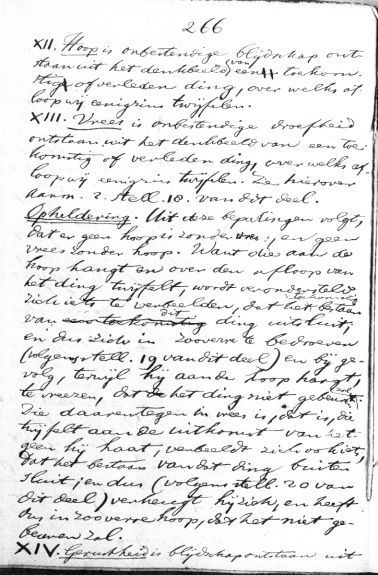 266
XII. Hoop is onbestendige blijdschap ont-
staan uit het denkbeeld van een toekom-
stig of verleden ding, over welks af-
loop wij eenigzins twijfelen.
XIII. Vrees is onbestendige droefheid
ontstaan uit het denkbeeld van een toe-
komstig of verleden ding, over welks af-
loop wij eenigzins twijfelen. Zie hierover
Aanm. 2. Stell. 18. van dit deel.
Opheldering. Uit deze bepalingen volgt,
dat er geen hoop is zonder vrees, en geen
vrees zonder hoop. Want die aan de
hoop hangt en over den afloop van
het ding twijfelt, wordt verondersteld
zich iets te verbeelden, dat het toekomstig bestaan
van een toekomstig dit ding uitsluit,
en dus zich in zooverre te bedroeven
(volgens stell. 19 van dit deel) en bij ge-
volg, terwijl hij aan de hoop hangt,
te vreezen, dat het ding niet gebeuren zal.
Die daarentegen in vrees is, dat is, die
twijfelt aan de uitkomst van het-
geen hij haat, verbeeldt zich ook iets,
dat het bestaan van dat ding buiten
sluit; en dus (volgens stell. 20 van
dit deel) verheugt hij zich, en heeft
dus in zooverre hoop, dat het niet ge-
beuren zal.
XIV. Gerustheid is blijdschap ontstaan uit